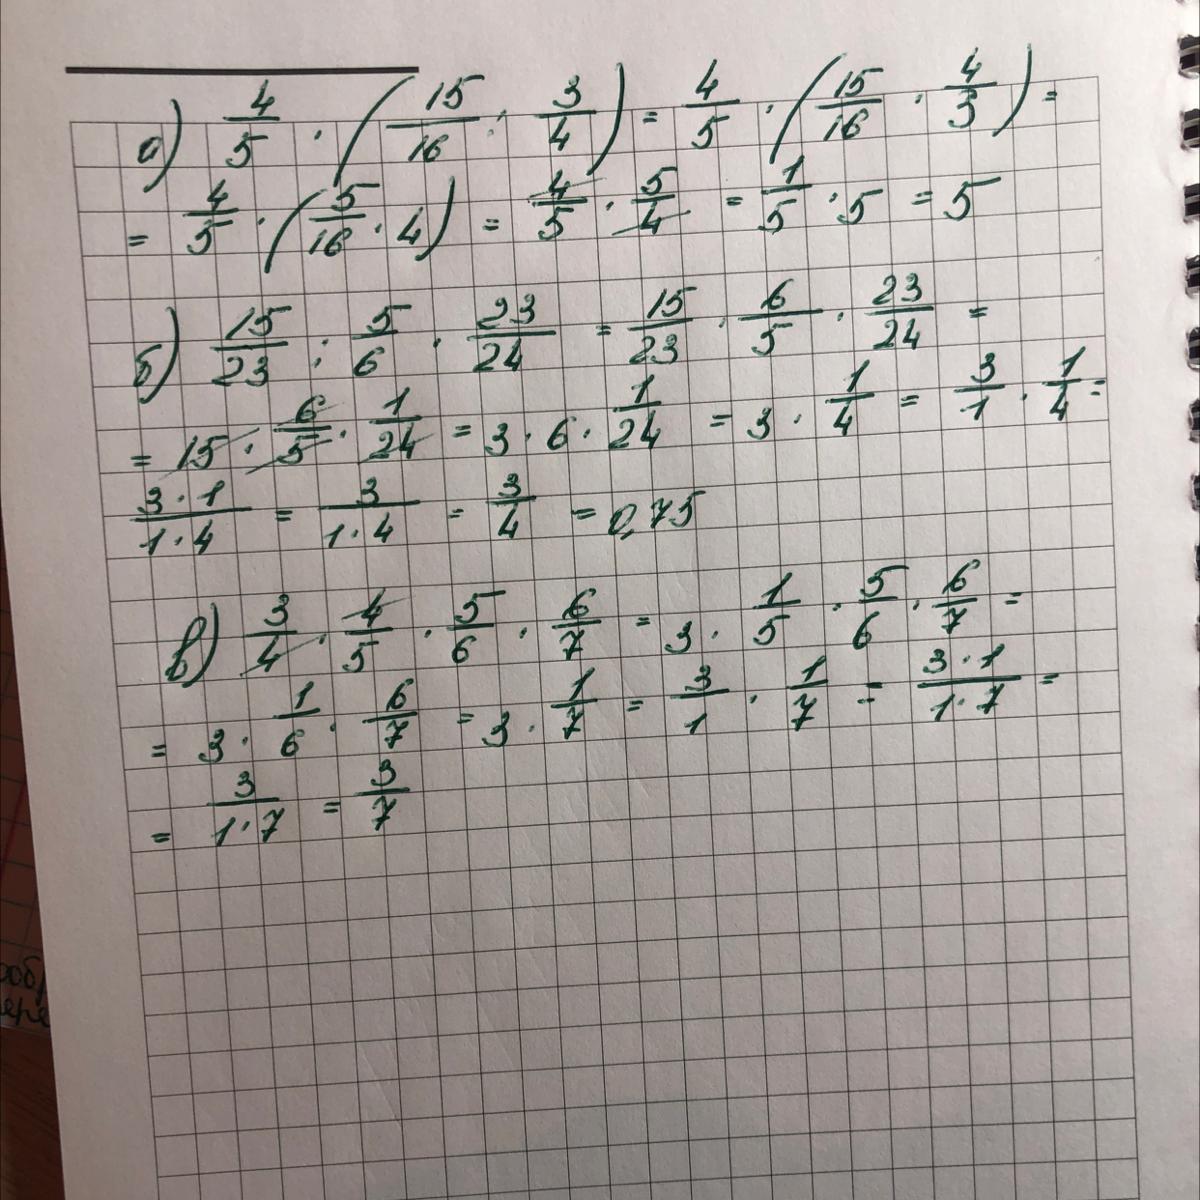 а) 4/5 · (15/16 : 3/4) = 4/5 · (15/16 · 4/3) =
= 4/5 · (5/16 · 4) = 4/5 · 5/4 = 1/5 · 5 = 5
б) 15/23 : 5/6 · 23/24 = 15/23 · 6/5 · 23/24 =
= 15 · 6/5 · 1/24 = 3 · 6 · 1/24 = 3 · 1/4 = 3/1 · 1/4 =
3·1/1·4 = 3/1·4 = 3/4 = 0,75
в) 3/4 · 4/5 · 5/6 · 6/7 = 3 · 1/5 · 5/6 · 6/7 =
= 3 · 1/6 · 6/7 = 3 · 1/7 = 3/1 · 1/7 = 3·1/1·7 =
= 3/1·7 = 3/7